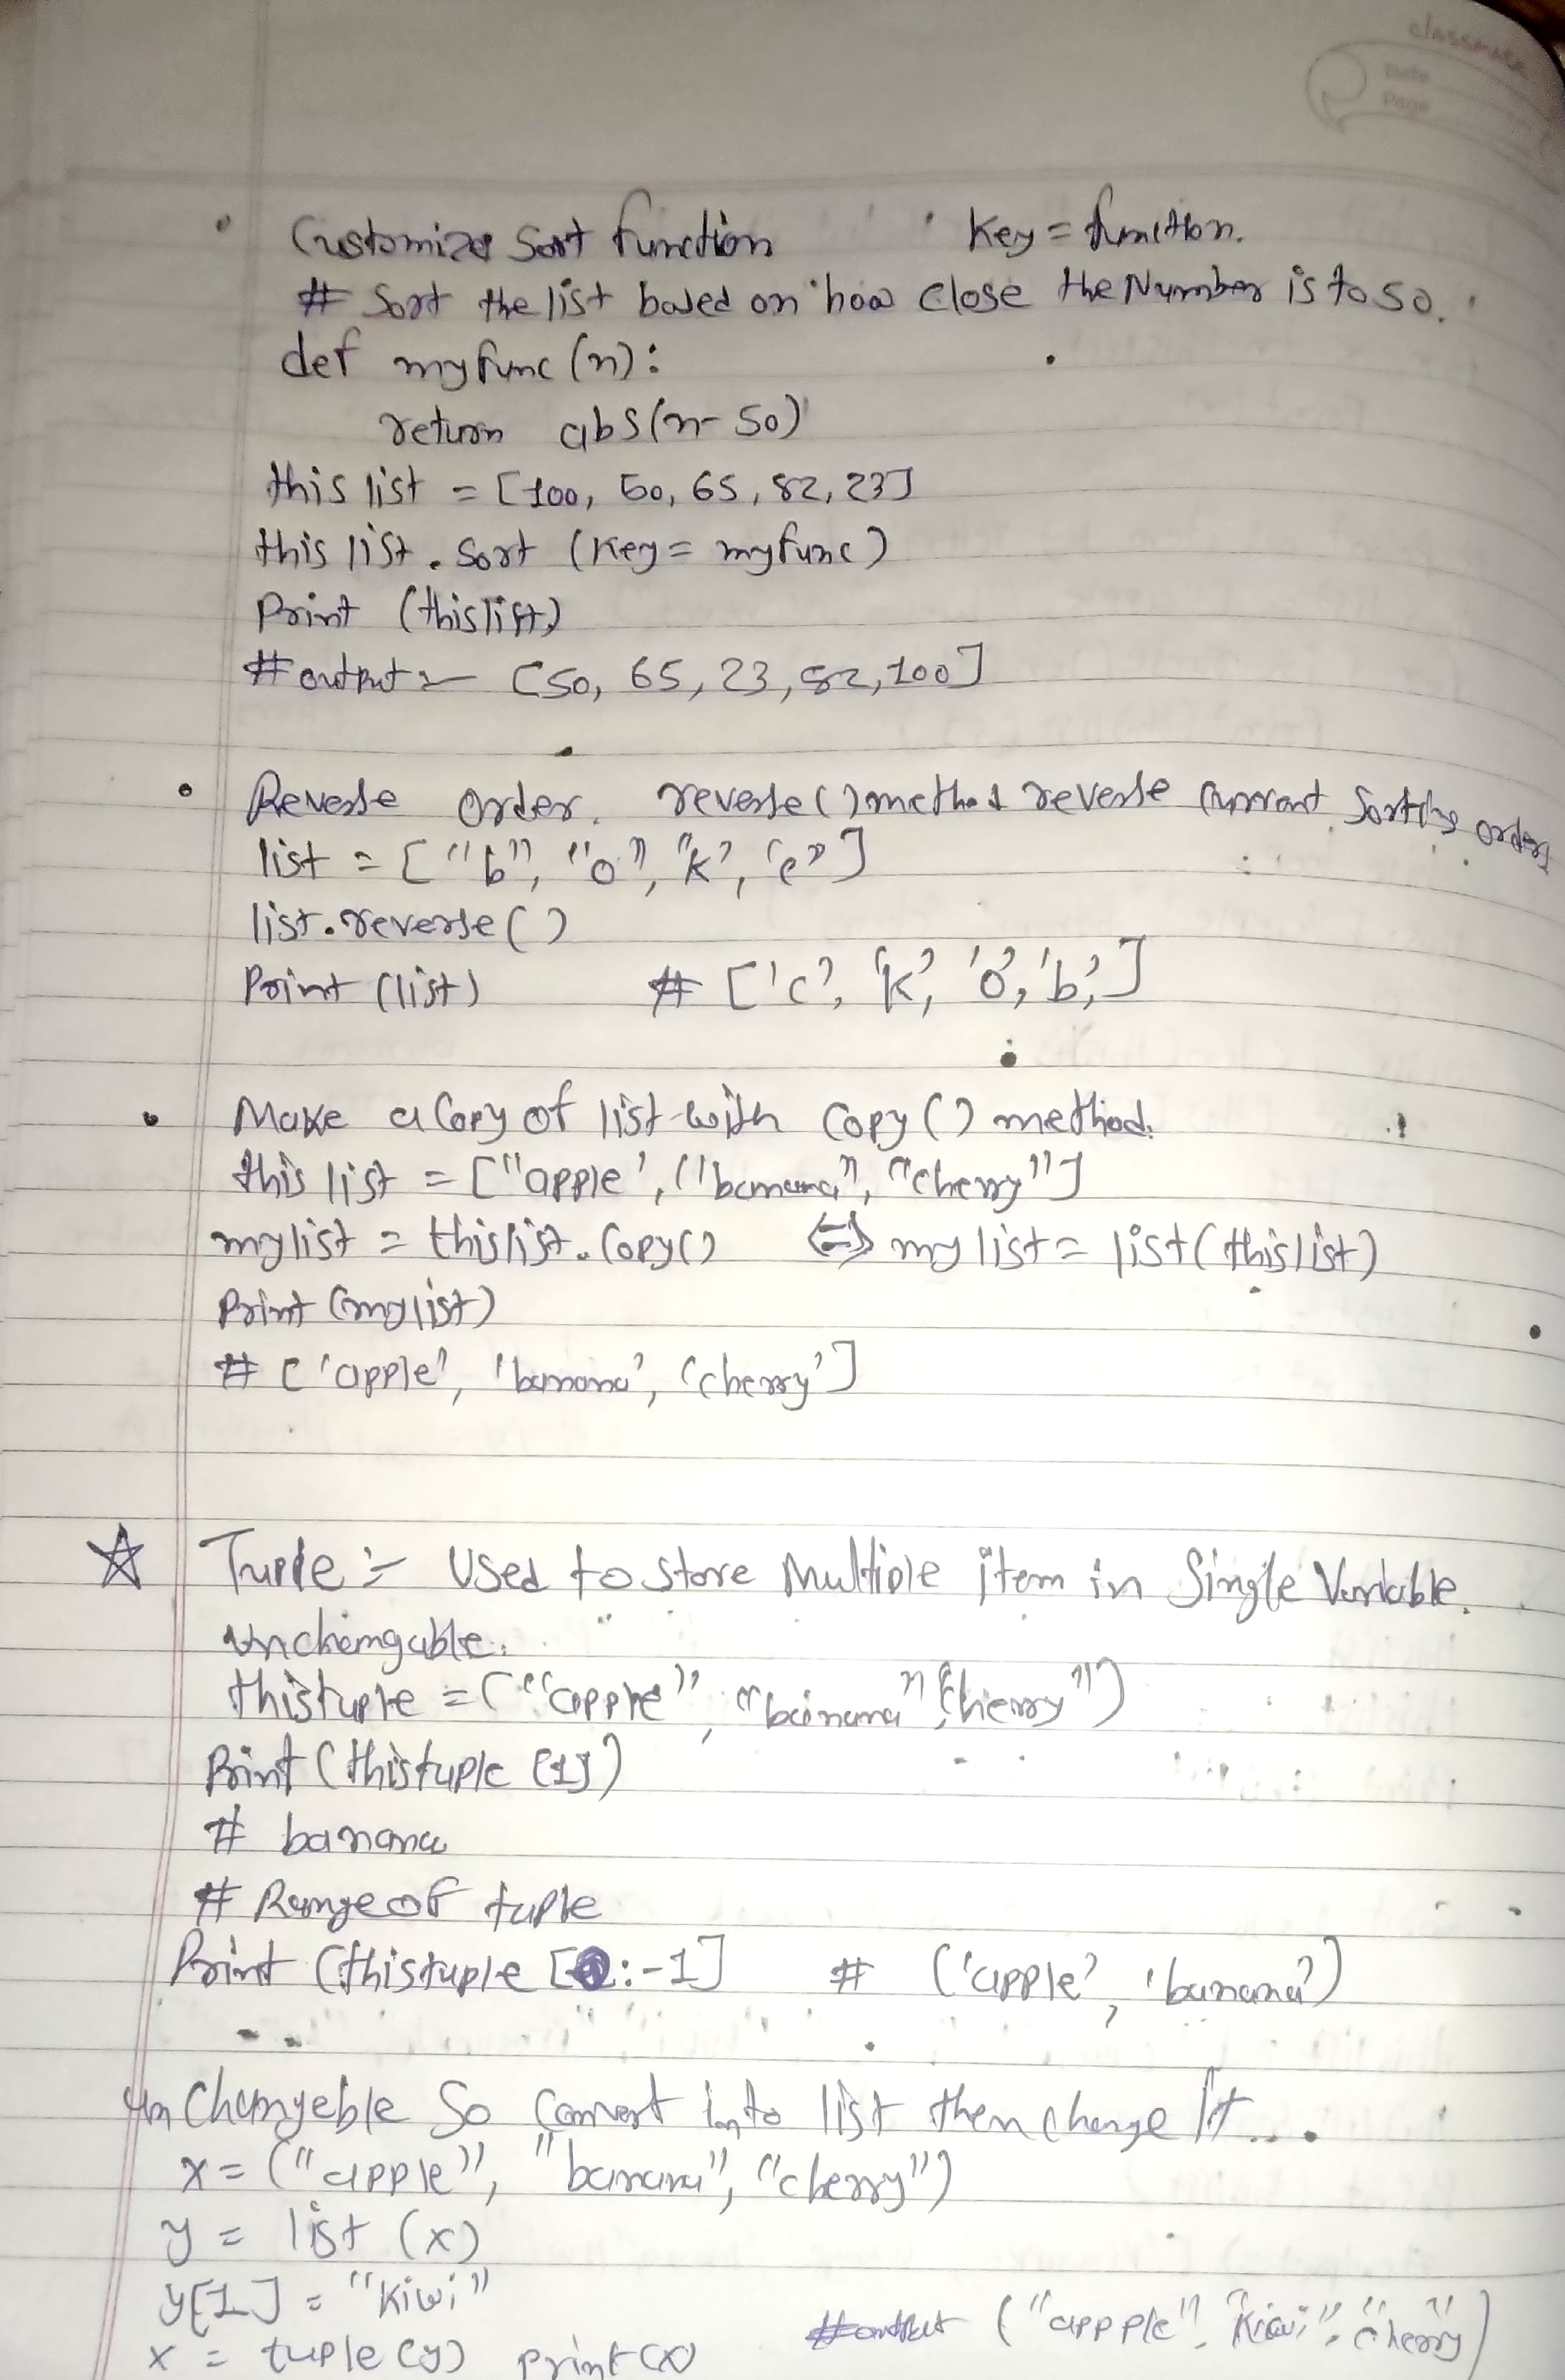 classmate
Date
Page
Customize Sort function • Key = function.
# Sort the list based on how close the Number is to 50.
def myfunc (n):
return abs(n-50)
this list = [100, 50, 65, 82, 23]
this list. Sort (Key = myfunc)
Print (thislist)
#output :- [50, 65, 23, 82, 100]
• Reverse order. reverse() method reverse current Sorting order
list = ["b", "o", "k", "c"]
list.reverse()
Print (list) # ['c', 'k', 'o', 'b',]
• Make a Copy of list with Copy() method.
this list = ["apple', "banana", "cherry"]
mylist = thislist.Copy() <=> mylist = list(thislist)
Print (mylist)
# ['apple', 'banana', 'cherry']
☆ Tuple :- Used to store Multiple item in Single Variable.
Unchangable.
thistuple = ("apple", "banana" "cherry")
Print (thistuple [1])
# banana
# Range of tuple
Print (thistuple [:-1] # ('apple', 'banana')
Un Changeble So Convert into list then change it...
x = ("apple", "banana", "cherry")
y = list (x)
y[1] = "Kiwi"
x = tuple (y) print(x) #output ("appple", "Kiwi", "cherry")